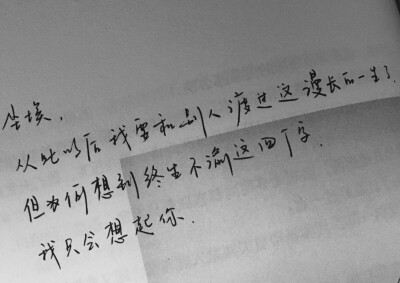 尘埃，
从此以后我要和别人渡过这漫长的一生了，
但如何想到终生不渝这四个字，
我只会想起你．